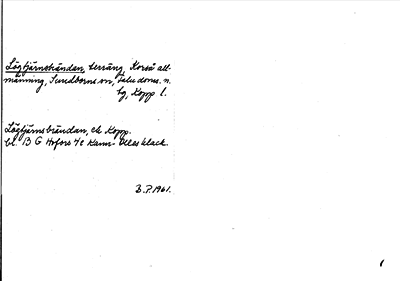 Lögtjärnsbrändan, terräng, Korså all-
männing, Sundborns sn, Falu doms. n.
tg, Kopp l.
Lögtjärnsbrändan, ek Kopp.
bl. 13 G Hofors 4e Kam- Ulles klack.
B.P. 1961.